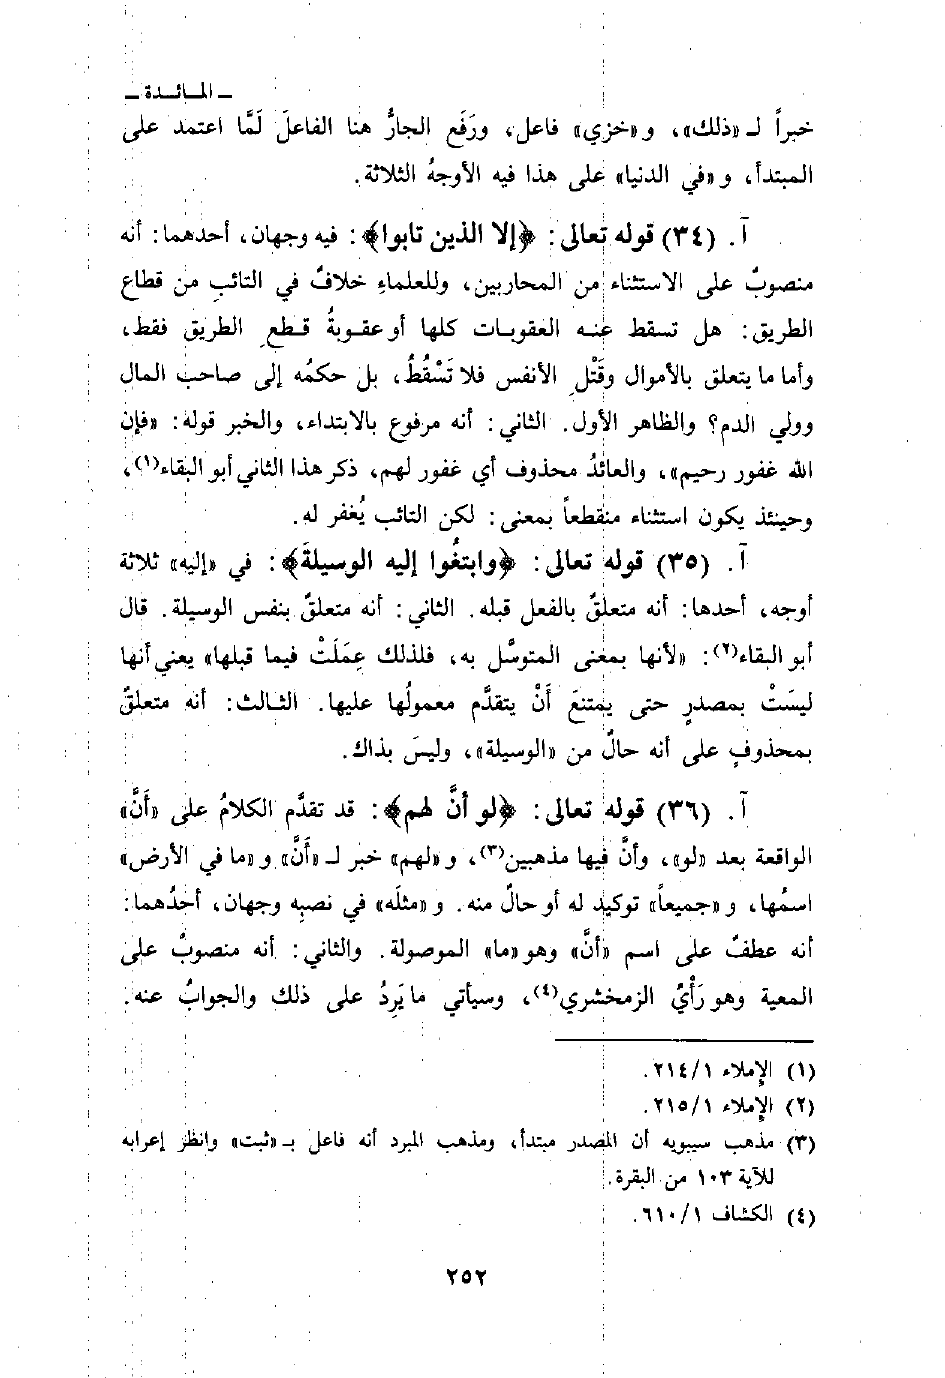 ـ المـائـدة ـ
خبراً لـ «ذلك»، و«خزي» فاعل، ورَفَع الجارُّ هنا الفاعلَ لَمَّا اعتمد على
المبتدأ، و«في الدنيا» على هذا فيه الأوجهُ الثلاثة.
آ. (٣٤) قوله تعالى: ﴿إلا الذين تابوا﴾: فيه وجهان، أحدهما: أنه
منصوبٌ على الاستثناء من المحاربين، وللعلماءِ خلافٌ في التائبِ من قطاع
الطريق: هل تسقط عنـه العقوبـات كلها أو عقـوبةُ قـطعِ الطريق فقط،
وأما ما يتعلق بالأموال وقَتْلِ الأنفس فلا تَسْقُطُ، بل حكمُه إلى صاحب المال
وولي الدم؟ والظاهر الأول. الثاني: أنه مرفوع بالابتداء، والخبر قولة: «فإن
الله غفور رحيم»، والعائدُ محذوف أي غفور لهم، ذكر هذا الثاني أبو البقاء(١)،
وحينئذ يكون استثناء منقطعاً بمعنى: لكن التائب يُغفر له.
آ. (٣٥) قوله تعالى: ﴿وابتغُوا إليه الوسيلةَ﴾: في «إليه» ثلاثة
أوجه، أحدها: أنه متعلقٌ بالفعل قبله. الثاني: أنه متعلقٌ بنفس الوسيلة. قال
أبو البقاء(٢): «لأنها بمعنى المتوسَّل به، فلذلك عِمَلَتْ فيما قبلها» يعني أنها
ليسَتْ بمصدرٍ حتى يمتنعَ أَنْ يتقدَّم معمولُها عليها. الثـالث: أنه متعلقٌ
بمحذوفٍ على أنه حالٌ من «الوسيلة»، وليسَ بذاك.
آ. (٣٦) قوله تعالى: ﴿لو أنَّ لهم﴾: قد تقدَّم الكلامُ على «أَنَّ»
الواقعة بعد «لو»، وأنَّ فيها مذهبين(٣)، و«لهم» خبر لـ «أَنَّ» و«ما في الأرض»
اسمُها، و«جميعاً» توكيد له أو حالٌ منه. و«مثلَه» في نصبِه وجهان، أحدُهما:
أنه عطفٌ على اسم «أنَّ» وهو «ما» الموصولة. والثاني: أنه منصوبٌ على
المعية وهو رَأْيُ الزمخشري(٤)، وسيأتي ما يَرِدُ على ذلك والجوابُ عنه.
(١) الإملاء ٢١٤/١.
(٢) الإملاء ٢١٥/١.
(٣) مذهب سيبويه أن المصدر مبتدأ، ومذهب المبرد أنه فاعل بـ «ثبت» وانظر إعرابه
للآية ١٠٣ من البقرة.
(٤) الكشاف ٦١٠/١.
٢٥٢